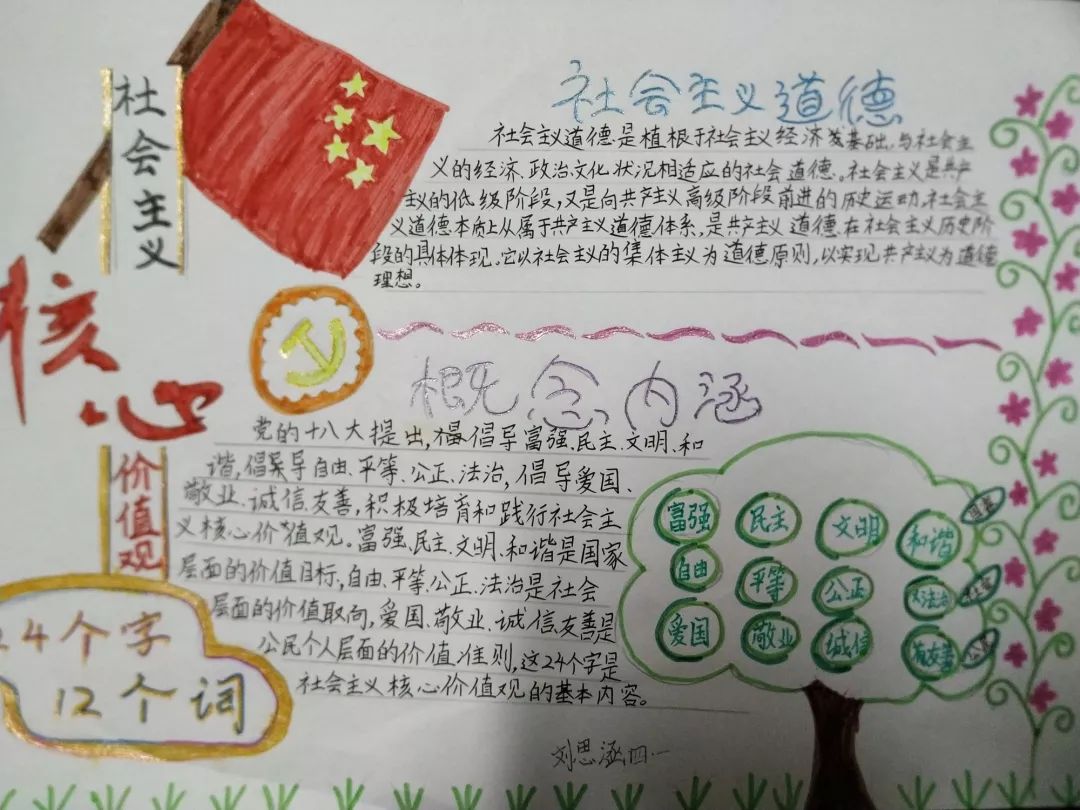 社会主义
核心
价值观
24个字
12个词
社会主义道德
社会主义道德是植根于社会主义经济发基础,与社会主
义的经济、政治、文化状况相适应的社会道德。社会主义是共产
主义的低级阶段,又是向共产主义高级阶段前进的历史运动,社会主
义道德本质上从属于共产主义道德体系,是共产主义道德在社会主义历史阶
段的具体体现。它以社会主义的集体主义为道德原则,以实现共产主义为道德
理想。
概念内涵
党的十八大提出,倡导富强、民主、文明、和
谐,倡导自由、平等、公正、法治,倡导爱国、
敬业、诚信、友善,积极培育和践行社会主
义核心价值观。富强、民主、文明、和谐是国家
层面的价值目标,自由、平等、公正、法治是社会
层面的价值取向,爱国、敬业、诚信、友善是
公民个人层面的价值准则,这24个字是
社会主义核心价值观的基本内容。
富强 民主 文明 和谐 国家
自由 平等 公正 法治 社会
爱国 敬业 诚信 友善 公民
刘思涵 四一